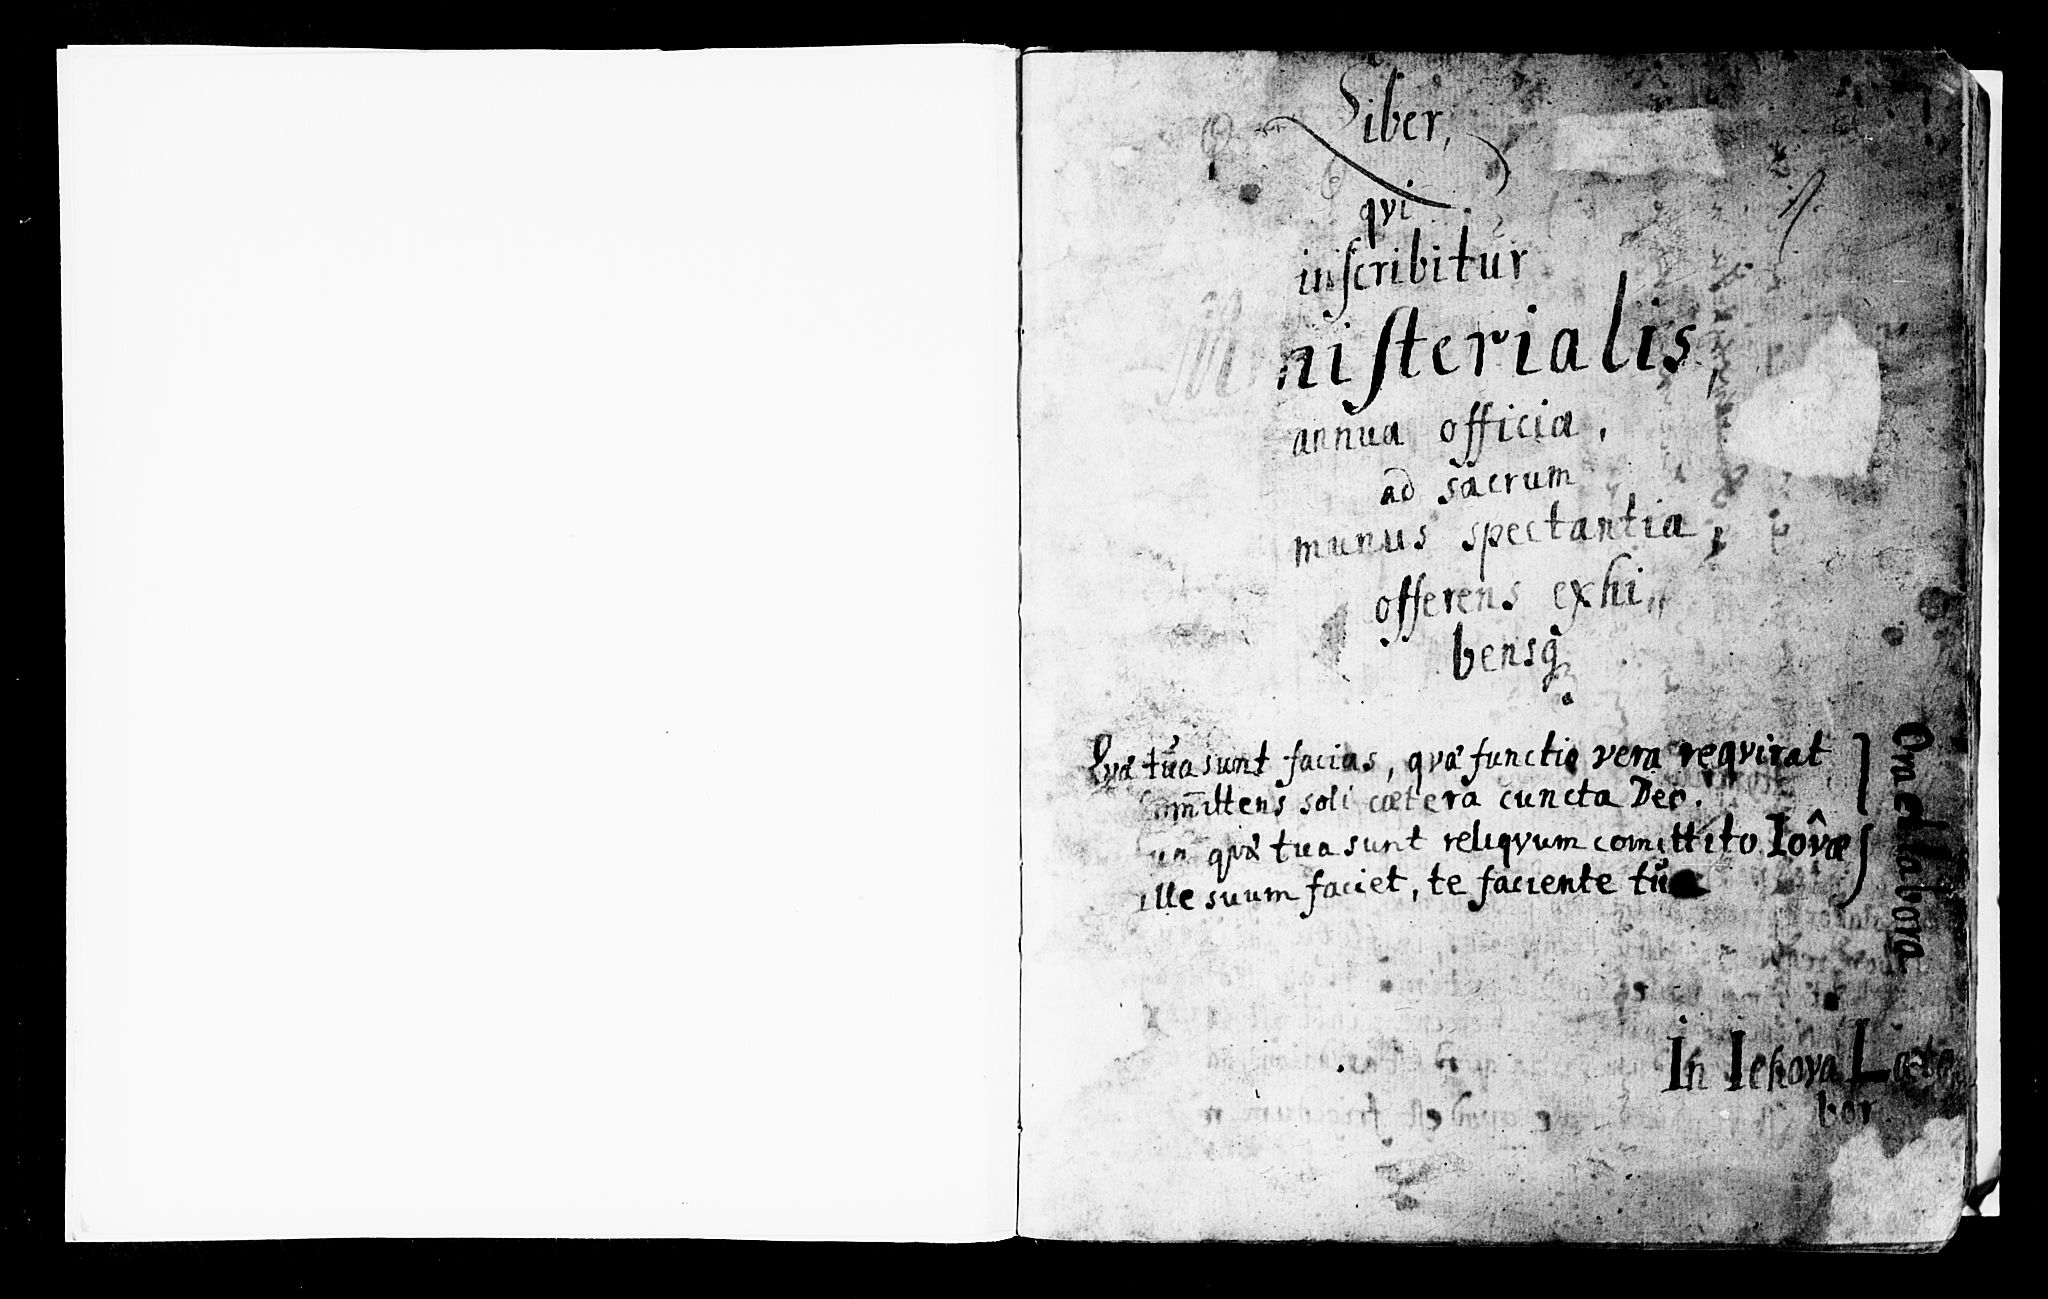 Liber,
qvi
inscribitur
Ministerialis,
annua officia,
ad sacrum
munus spectantia,
offerens exhi„
bensq́
Qvæ tua sunt facias, qvæ functio vera reqvirat
Com̄ittens soli cætera cuncta Deo.
qvæ tua sunt reliqvum comittito Iôvæ
ille suum faciet, te faciente tuū
Ora et labora
In Iehova Læta„
bor